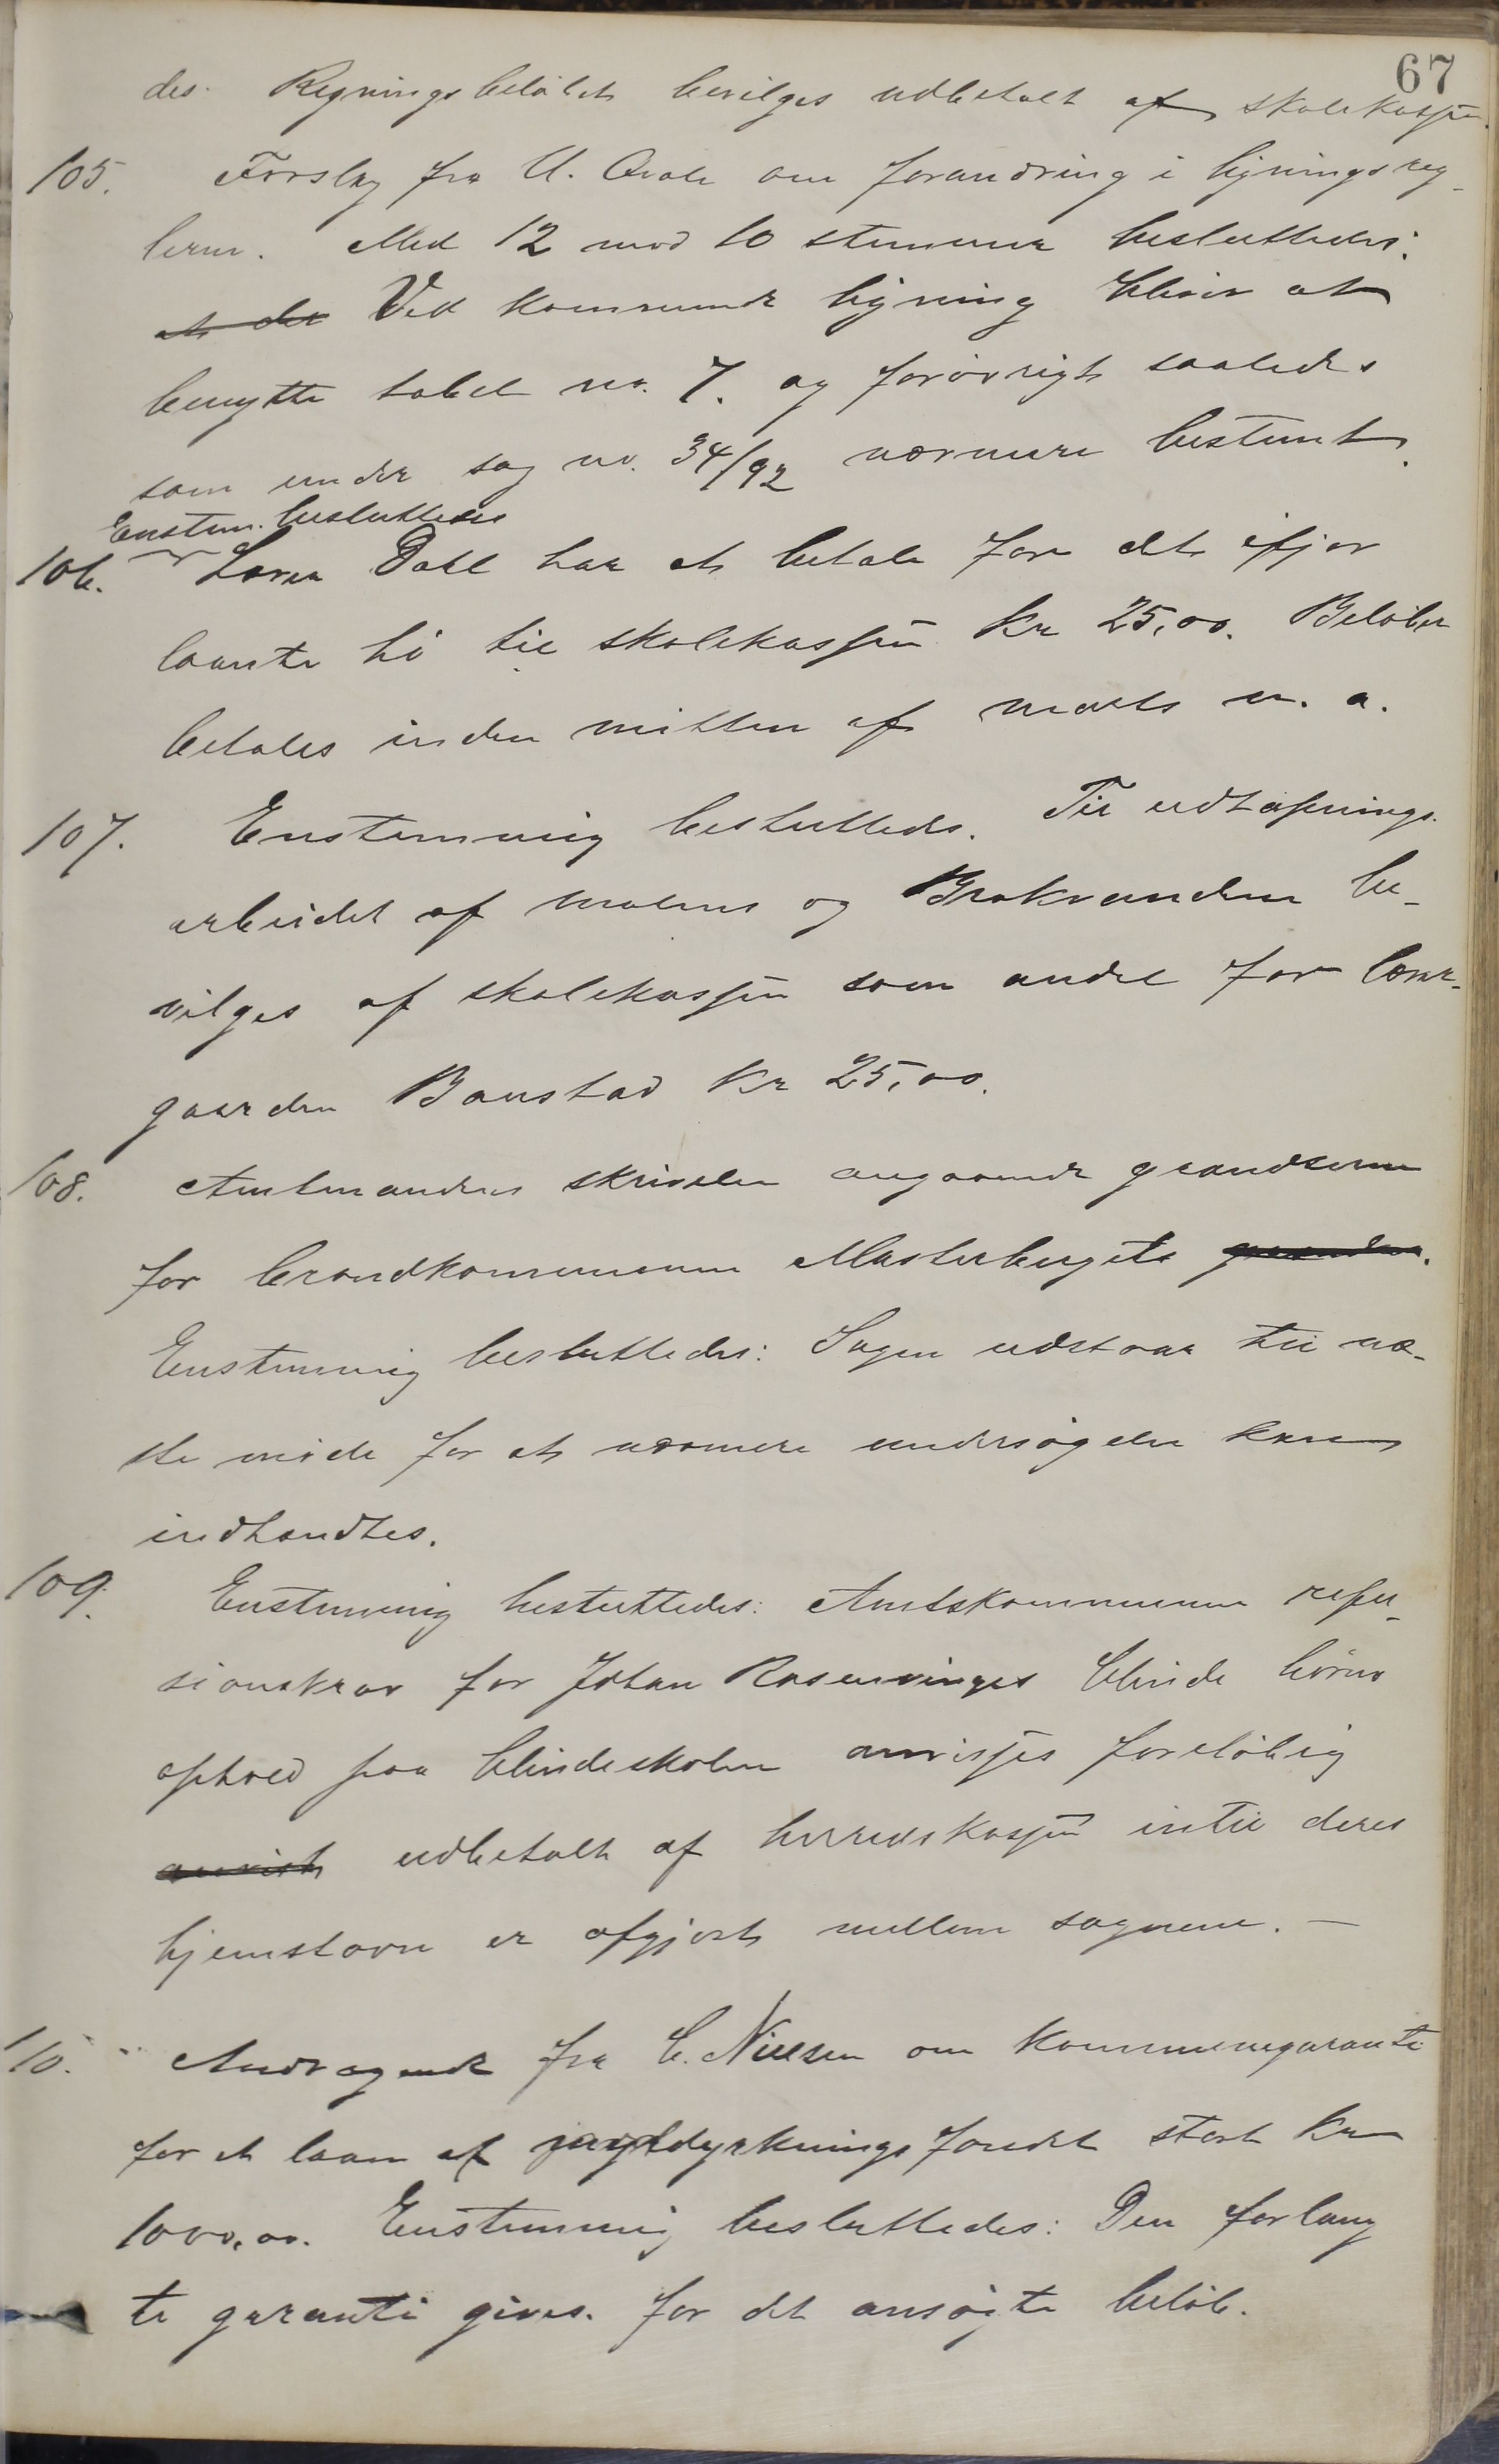 67
des. Regningsbeløbet bevilges udbetalt af skolekassen.
105. Forslag fra U. Qvale om forandring i ligningsreg-
lerne. Med 12 mod 10 stemmer besluttedes:
at der Ved kommende ligning bliver at
benytte tabel no. 7. og forøvrigt saaledes
som under sag no. 34/92 nærmere bestemt.
Enstem. besluttedes
106. Lærer Dahl har at betale for det ifjor
laante hø til skolekassen Kr 25,00. Beløbet
betales inden mitten af marts n. a.
107. Enstemmig besluttedes. Til udtapnings-
arbeidet af og Brakvandene be-
vilges af skolekassen som andel for lærer-
gaarden Banstad Kr 25,00.
108. Amtmandens skrivelse angaaende grændserne
for brandkommunen Masterbugets grændser.
Enstemmig besluttedes: Sagen udstaar til næ-
ste møde for at nærmere undersøgelse kan
indhændtes.
109. Enstemmig besluttedes: Amtskommunens refu-
sionskrav for Johan Rosenvinges blinde børns
ophold paa blindeskolen anvises foreløbig
anvist udbetalt af herredskassen intil deres
hjemstavn er afgjort mellem sognene. —
110. Andragende fra C. Nielsen om kommunegaranti
for et laan af jorddyrkningsfondet stort Kr
1000,00. Enstemmig besluttedes: Den forlang
te garanti gives for det ansøgte beløb.